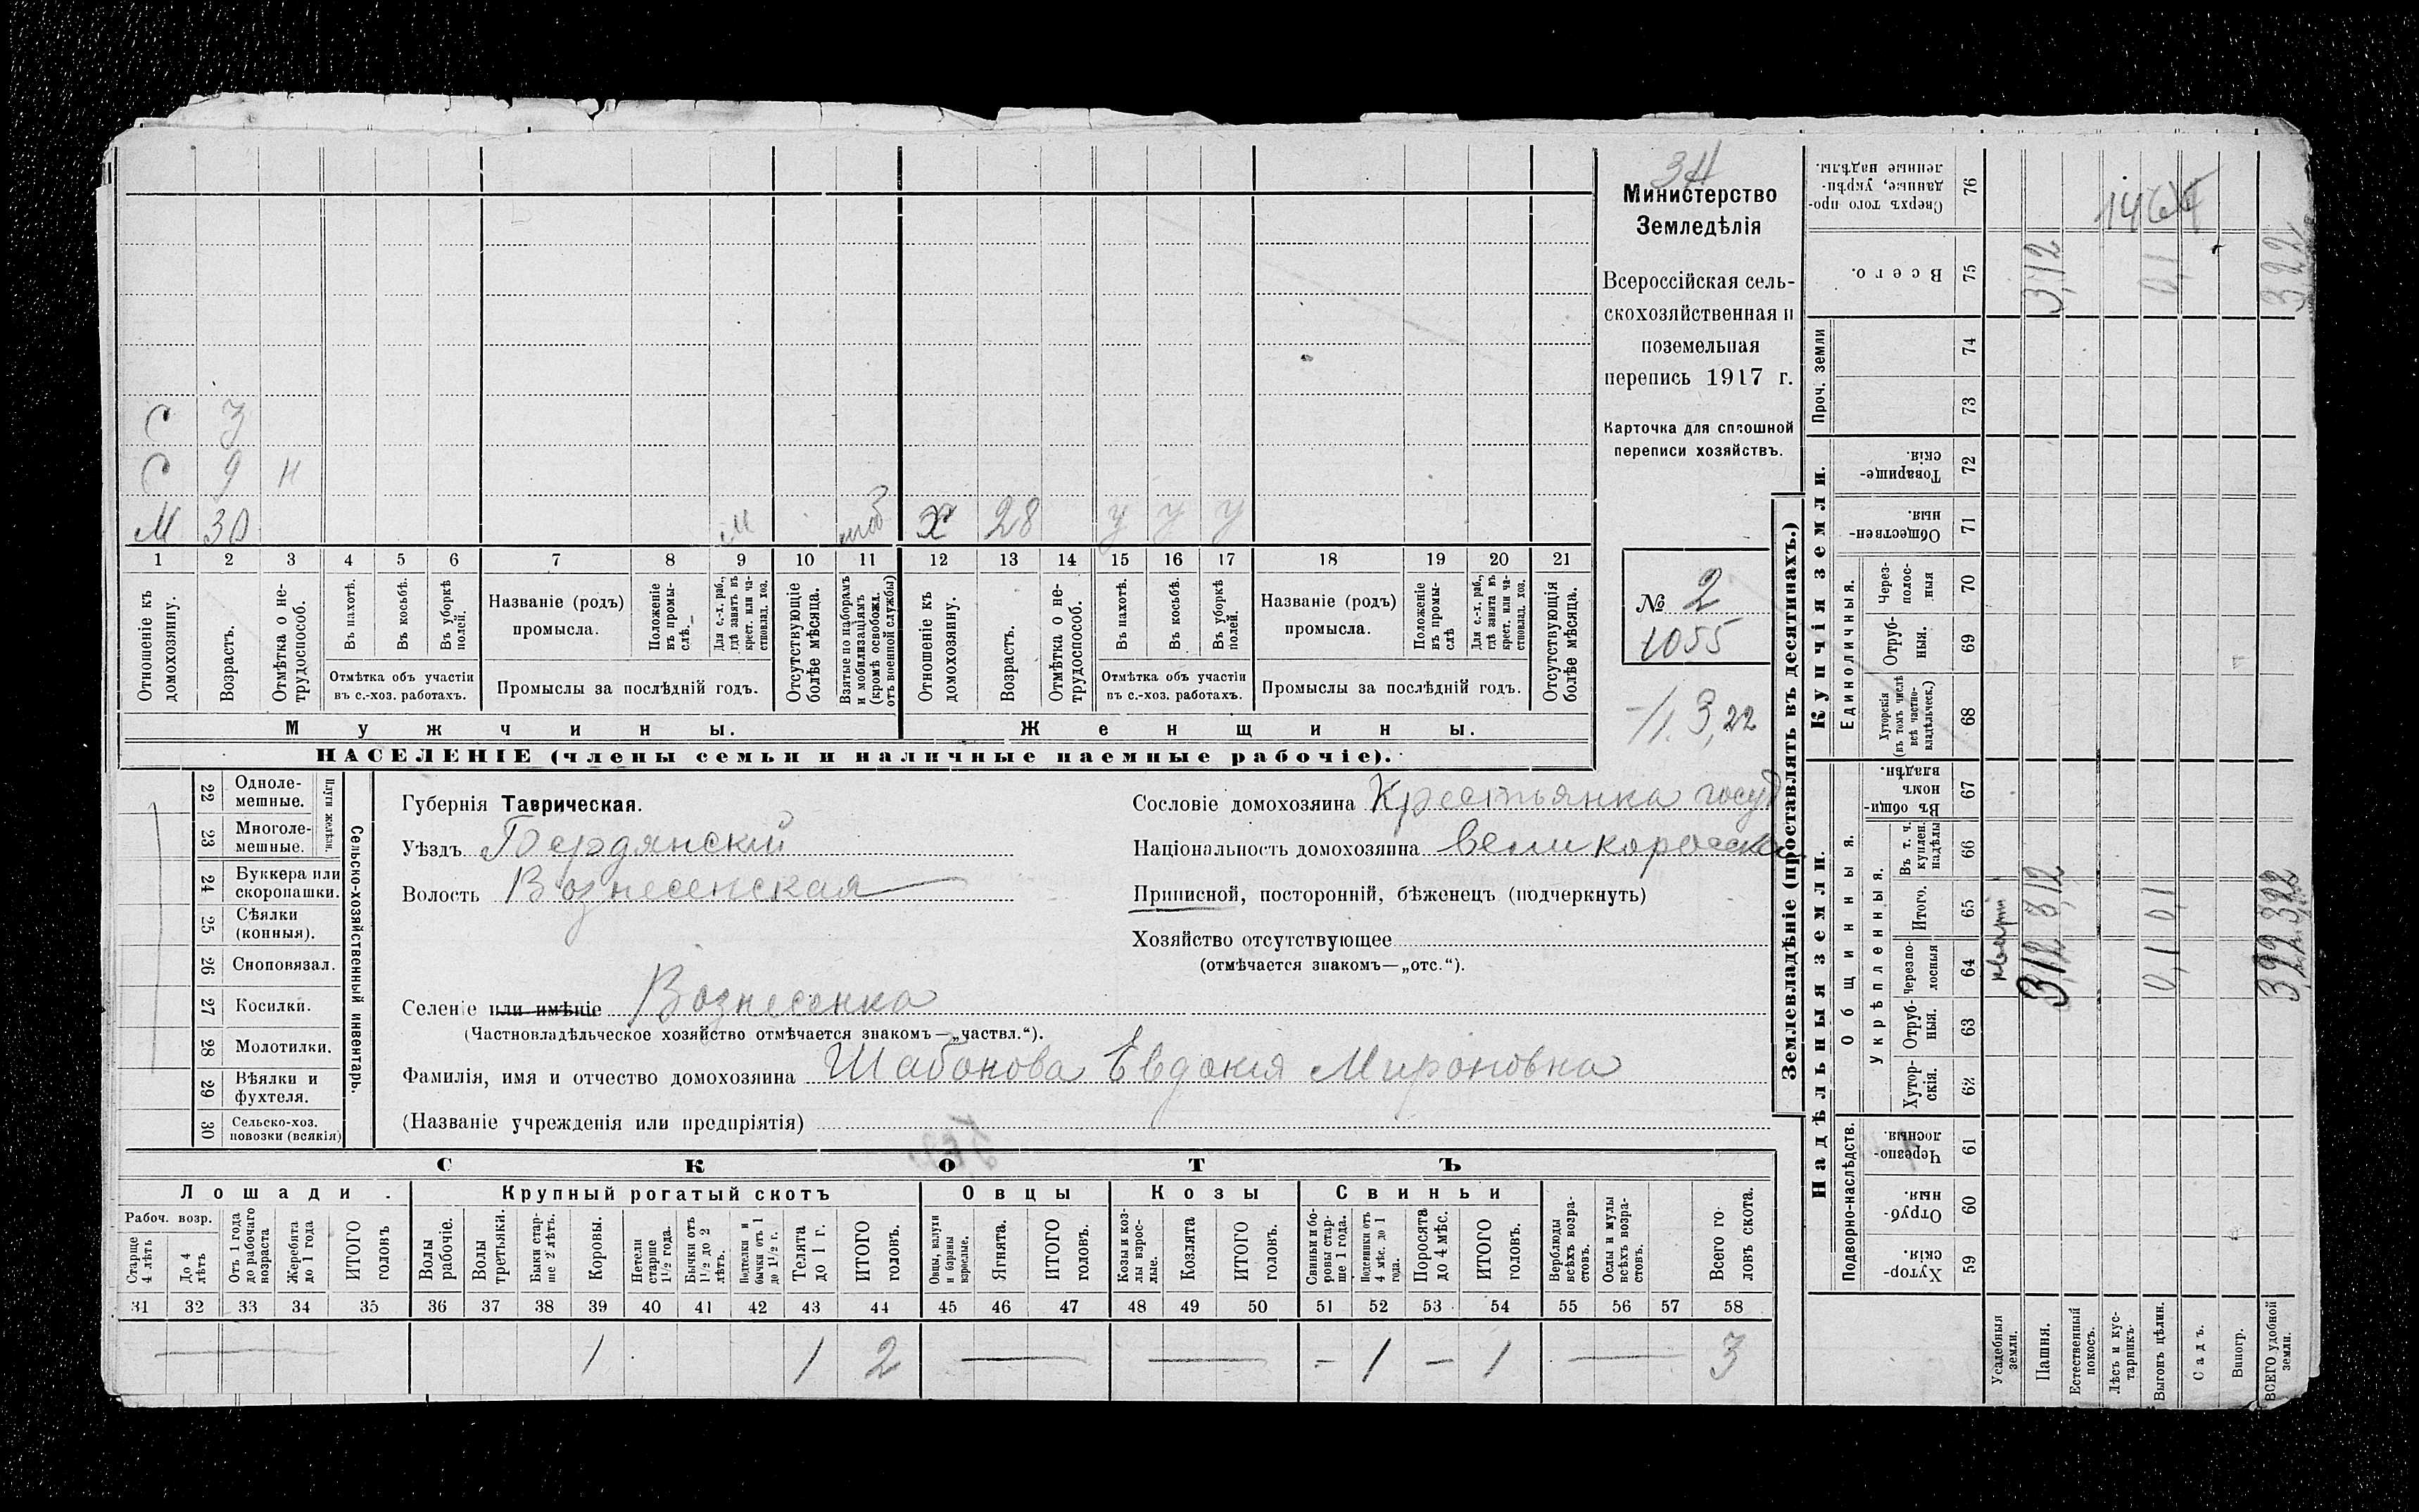 С 3
С 9 н
М 30 м моб Х 28 у у у
1 2 3 4 5 6 7 8 9 10 11 12 13 14 15 16 17 18 19 20 21
Отношеніе къ домохозяину.
Возрастъ.
Отмѣтка о не-
трудоспособ.
Въ пахотѣ.
Въ косьбѣ.
Въ уборкѣ
полей.
Отмѣтка объ участіи
въ с.-хоз. работахъ.
Названіе (родъ)
промысла.
Положеніе
въ промы-
слѣ.
Для с.-х. раб.,
гдѣ занятъ въ
крест. или ча-
стновлад. хоз.
Промыслы за послѣдній годъ.
Отсутствующіе
болѣе мѣсяца.
Взятые по наборамъ
и мобилизаціямъ
(кромѣ освобожд.
отъ военной службы)
Отношеніе къ
домохозяину.
Возрастъ.
Отмѣтка о не-
трудоспособ.
Въ пахотѣ.
Въ косьбѣ.
Въ уборкѣ
полей.
Отмѣтка объ участіи
въ с.-хоз. работахъ.
Названіе (родъ)
промысла.
Положеніе
въ промы-
слѣ
Для с.-х. раб.,
гдѣ занята въ
крест. или ча-
стновлад. хоз.
Промыслы за послѣдній годъ.
Отсутствующія
болѣе мѣсяца.
Мужчины.
Женщины.
НАСЕЛЕНІЕ (члены семьи и наличные наемные рабочіе).
Министерство
Земледѣлія
Всероссійская сель-
скохозяйственная и
поземельная
перепись 1917 г.
Карточка для сплошной
переписи хозяйствъ.
№ 2
1055
3,22
22 Одноле-
мешные.
23 Многоле-
мешные.
Плуги желѣзн.
24 Буккера или
скоропашки.
25 Сѣялки
(конныя).
26 Сноповязал.
27 Косилки.
28 Молотилки.
29 Вѣялки и
фухтеля.
30 Сельско-хоз.
повозки (всякія)
Сельско-хозяйственный инвентарь.
Губернія Таврическая.
Уѣздъ Бердянскій
Волость Вознесенская
Селеніе или имѣніе Вознесенка
(Частновладѣльческое хозяйство отмѣчается знакомъ—„частвл.“).
Фамилія, имя и отчество домохозяина Шабанова Евдокія Мироновна
(Названіе учрежденія или предпріятія)
Сословіе домохозяина Крестьянка госуд
Національность домохозяина великоросска
Приписной, посторонній, бѣженецъ (подчеркнуть)
Хозяйство отсутствующее
(отмѣчается знакомъ—„отс.“).
СКОТЪ
Лошади.
Крупный рогатый скотъ
Овцы
Козы
Свиньи
Рабоч. возр.
Старше
4 лѣтъ
До 4
лѣтъ
Отъ 1 года
до рабочаго
возраста
Жеребята
до 1 года
ИТОГО
головъ
Волы
рабочіе.
Волы
третьяки.
Быки стар-
ше 2 лѣтъ.
Коровы.
Нетели
старше
1½ года.
Бычки отъ
1½ до 2
лѣтъ.
Подтелки и
бычки отъ 1
до 1½ г.
Телята
до 1 г.
ИТОГО
головъ.
Овцы, валухи
и бараны
взрослые.
Ягнята.
ИТОГО
головъ.
Козы и коз-
лы взрос-
лые.
Козлята
ИТОГО
головъ.
Свиньи и бо-
ровы стар-
ше 1 года.
Подсвинки отъ
4 мѣс. до 1
года.
Поросята
до 4 мѣс.
ИТОГО
головъ.
Верблюды
всѣхъ возра-
стовъ.
Ослы и мулы
всѣхъ возра-
стовъ.
Всего го-
ловъ скота.
31 32 33 34 35 36 37 38 39 40 41 42 43 44 45 46 47 48 49 50 51 52 53 54 55 56 57 58
1 1 2 — — – 1 – 1 — 3
Землевладѣніе (проставлять въ десятинахъ.)
Надѣльныя земли.
Купчія земли.
Проч. земли
Подворно-наслѣдств.
Общинныя.
Укрѣпленныя.
Единоличныя.
Сверхъ того про-
данные, укрѣп-
ленные надѣлы.
76
Всего.
75
74
73
Товарище-
скія.
72
Обществен-
ныя.
71
Через-
полос-
ныя
70
Отруб-
ныя.
69
Хуторскія
(въ томъ числѣ
всѣ частно-
владѣльческ.)
68
Въ общи-
номъ
владѣн.
67
Въ т. ч.
куплен.
надѣлы
66
Итого.
65
Черезпо-
лосныя
64
Отруб-
ныя.
63
Хутор-
скія.
62
Черезпо-
лосныя.
61
Отруб-
ныя.
60
Хутор-
скія.
59
Усадебныя
земли.
Пашня.
3,12 3,12 3,12
Естественный
покосъ.
Лѣсъ и кус-
тарникъ.
Выгонъ цѣлин.
0,1 0,1 0,1
Садъ.
Виногр.
ВСЕГО удобной
земли.
3,22 3,22 3,22